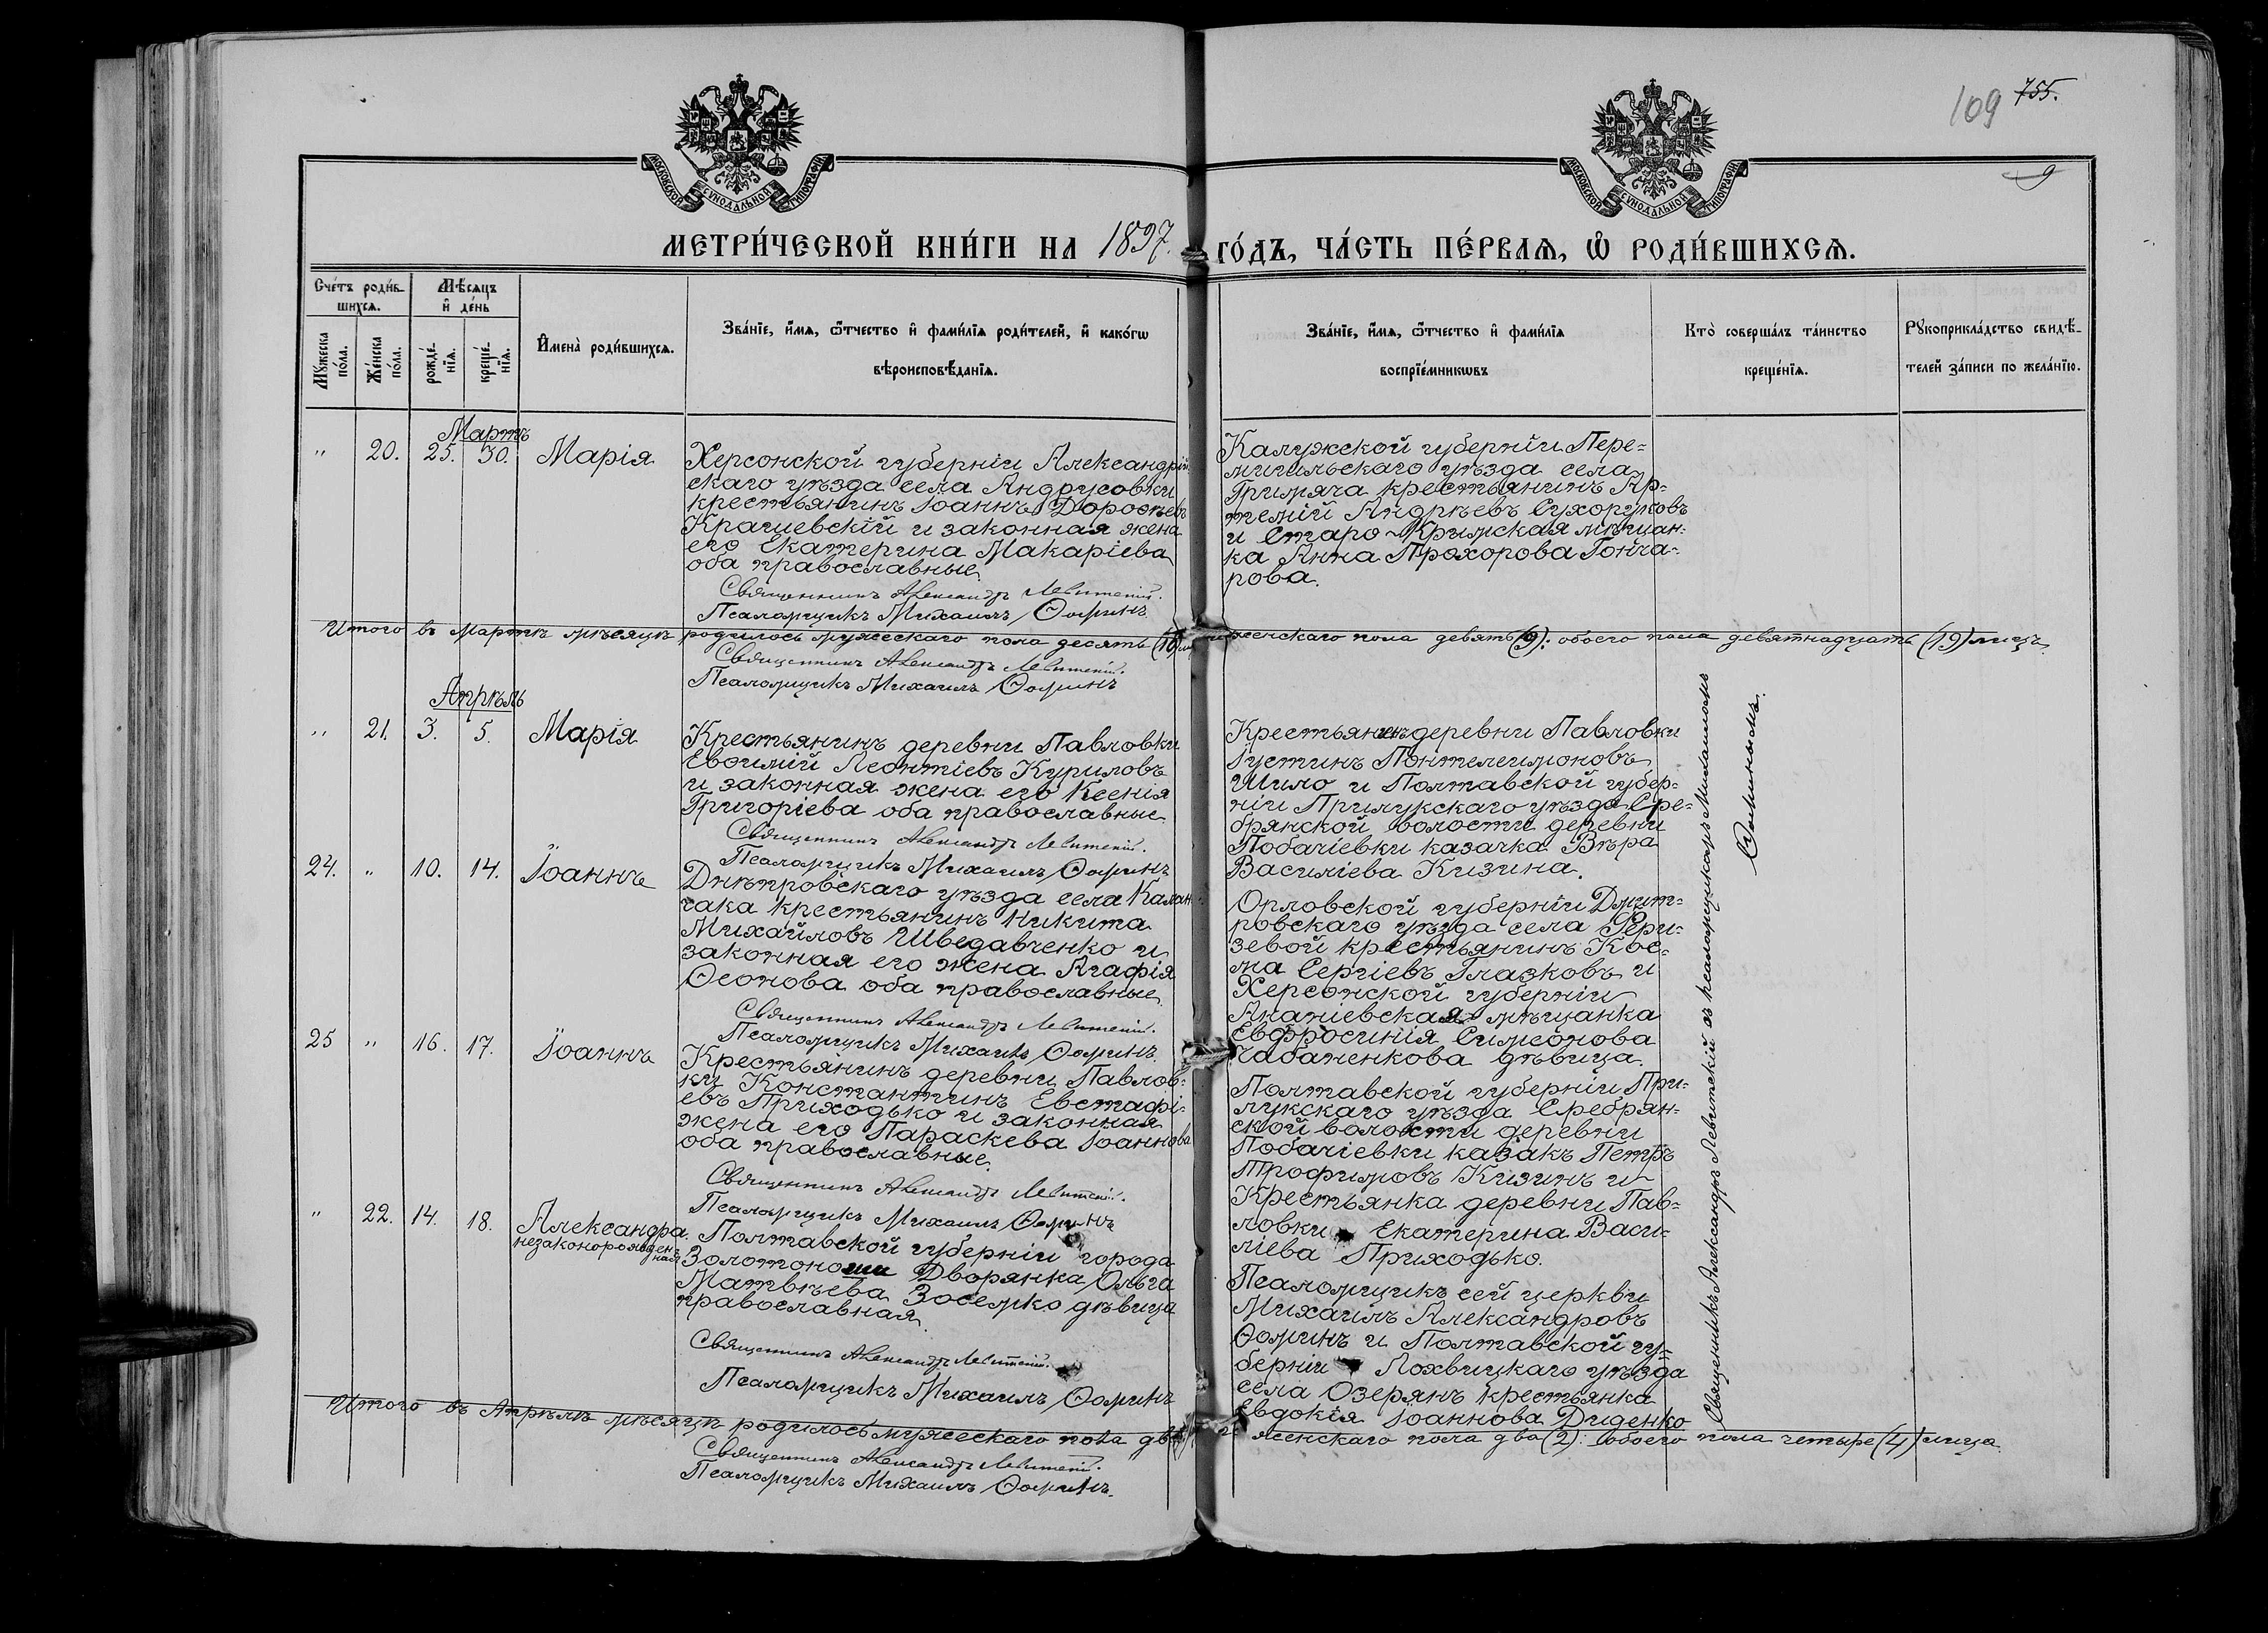 109 755.
9
МОСКОВСКОЙ СѴНОДАЛЬНОЙ ТИПОГРАФІИ
МОСКОВСКОЙ СѴНОДАЛЬНОЙ ТИПОГРАФІИ
МЕТРИ́ЧЕСКОЙ КНИ́ГИ НА 1897. ГО́ДЪ, ЧА́СТЬ ПЕ́РВАѦ, Ѽ РОДИ́ВШИХСѦ.
Сче́тъ роди́в-
шихсѧ.
Мѣ́сѧцъ
и҆ де́нь
Мꙋ́жеска
по́ла.
Же́нска
по́ла.
рожде́-
нїѧ.
креще́-
нїѧ.
И҆мена̀ роди́вшихсѧ.
Зва́нїе, и҆́мѧ, ѻ҆́тчество и҆ фами́лїѧ роди́телей, и҆ како́гѡ
вѣроисповѣ́данїѧ.
Зва́нїе, и҆́мѧ, ѻ҆́тчество и҆ фами́лїѧ
воспрїе́мникѡвъ
Кто̀ соверша́лъ та́инство
креще́нїѧ.
Рꙋкоприкла́дство свидѣ́-
телей за́писи по жела́нїю.
Мартъ
" 20. 25. 30. Марія
Херсонской губерніи Александрій
скаго уѣзда села Андрусовки
крестьянинъ Іоаннъ Дороѳеевъ
Крачиевскій и законная жена
его Екатерина Макаріева
оба православные.
Священникъ Александръ Левитскій.
Псаломщикъ Михаилъ Ѳоминъ
Калужской губерніи Пере-
мишльскаго уѣзда села
Гримяча крестьянинъ Ар-
темій Андреевъ Сухоруковъ
и Старо-Крымская мѣщан-
ка Анна Прохорова Гонча-
рова.
Итого въ Мартѣ мѣсяцѣ родилось мужескаго пола десять (10) женскаго пола девять (9): обоего пола девятнадцать (19) лицъ
Священникъ Александръ Левитскій.
Псаломщикъ Михаилъ Ѳоминъ
Апрѣль
" 21. 3. 5. Марія
Крестьянинъ деревни Павловки
Евѳимій Леонтіевъ Куриловъ
и законная жена его Ксенія
Григоріева оба православные.
Священникъ Александръ Левитскій.
Псаломщикъ Михаилъ Ѳоминъ
Крестьянинъ деревни Павловки
Іустинъ Понтелеимоновъ
Шило и Полтавской губер-
ніи Прилукскаго уѣзда Сре-
брянской волости деревни
Побачіевки казачка Вѣра
Василіева Кизина.
24. " 10. 14. Іоаннъ
Днѣпровскаго уѣзда села Калан
чака крестьянинъ Никита
Михайловъ Шведавченко и
законная его жена Агафія
Ѳеонова оба православные.
Священникъ Александръ Левитскій.
Псаломщикъ Михаилъ Ѳоминъ
Орловской губерніи Дмит-
ровскаго уѣзда села
зевой крестьянинъ Кос-
ма Сергіевъ Глазковъ и
Херсонской губерніи
Ананіевская мѣщанка
Евфросинія Симеонова
Чабаненкова дѣвица.
25 " 16. 17. Іоаннъ
Крестьянинъ деревни Павлов-
ки Константинъ Евстафі-
евъ Приходько и законная
жена его Параскева Іоаннова
оба православные.
Священникъ Александръ Левитскій.
Псаломщикъ Михаилъ Ѳоминъ
Полтавской губерніи При-
лукскаго уѣзда Сребрян-
ской волости деревни
Побачіевки казакъ Петръ
Трофимовъ Кизинъ и
Крестьянка деревни Пав-
ловки Екатерина Васи-
ліева Приходько.
" 22. 14. 18. Александра
незаконорожден
ная
Полтавской губерніи города
Золотоноши Дворянка Ольга
Матвѣева Зосемко дѣвица
православная.
Священникъ Александръ Левитскій.
Псаломщикъ Михаилъ Ѳоминъ
Псаломщикъ сей церкви
Михаилъ Александровъ
Ѳоминъ и Полтавской гу-
берніи Лохвицкаго уѣзда
села Озерянъ крестьянка
Евдокія Іоаннова Диденко
Священникъ Александръ Левитскій съ псаломщикомъ Михаиломъ
Ѳоминымъ.
Итого въ Апрѣлѣ мѣсяцѣ родилось мужескаго пола два женскаго пола два (2): обоего пола четыре (4) лица.
Священникъ Александръ Левитскій.
Псаломщикъ Михаилъ Ѳоминъ.